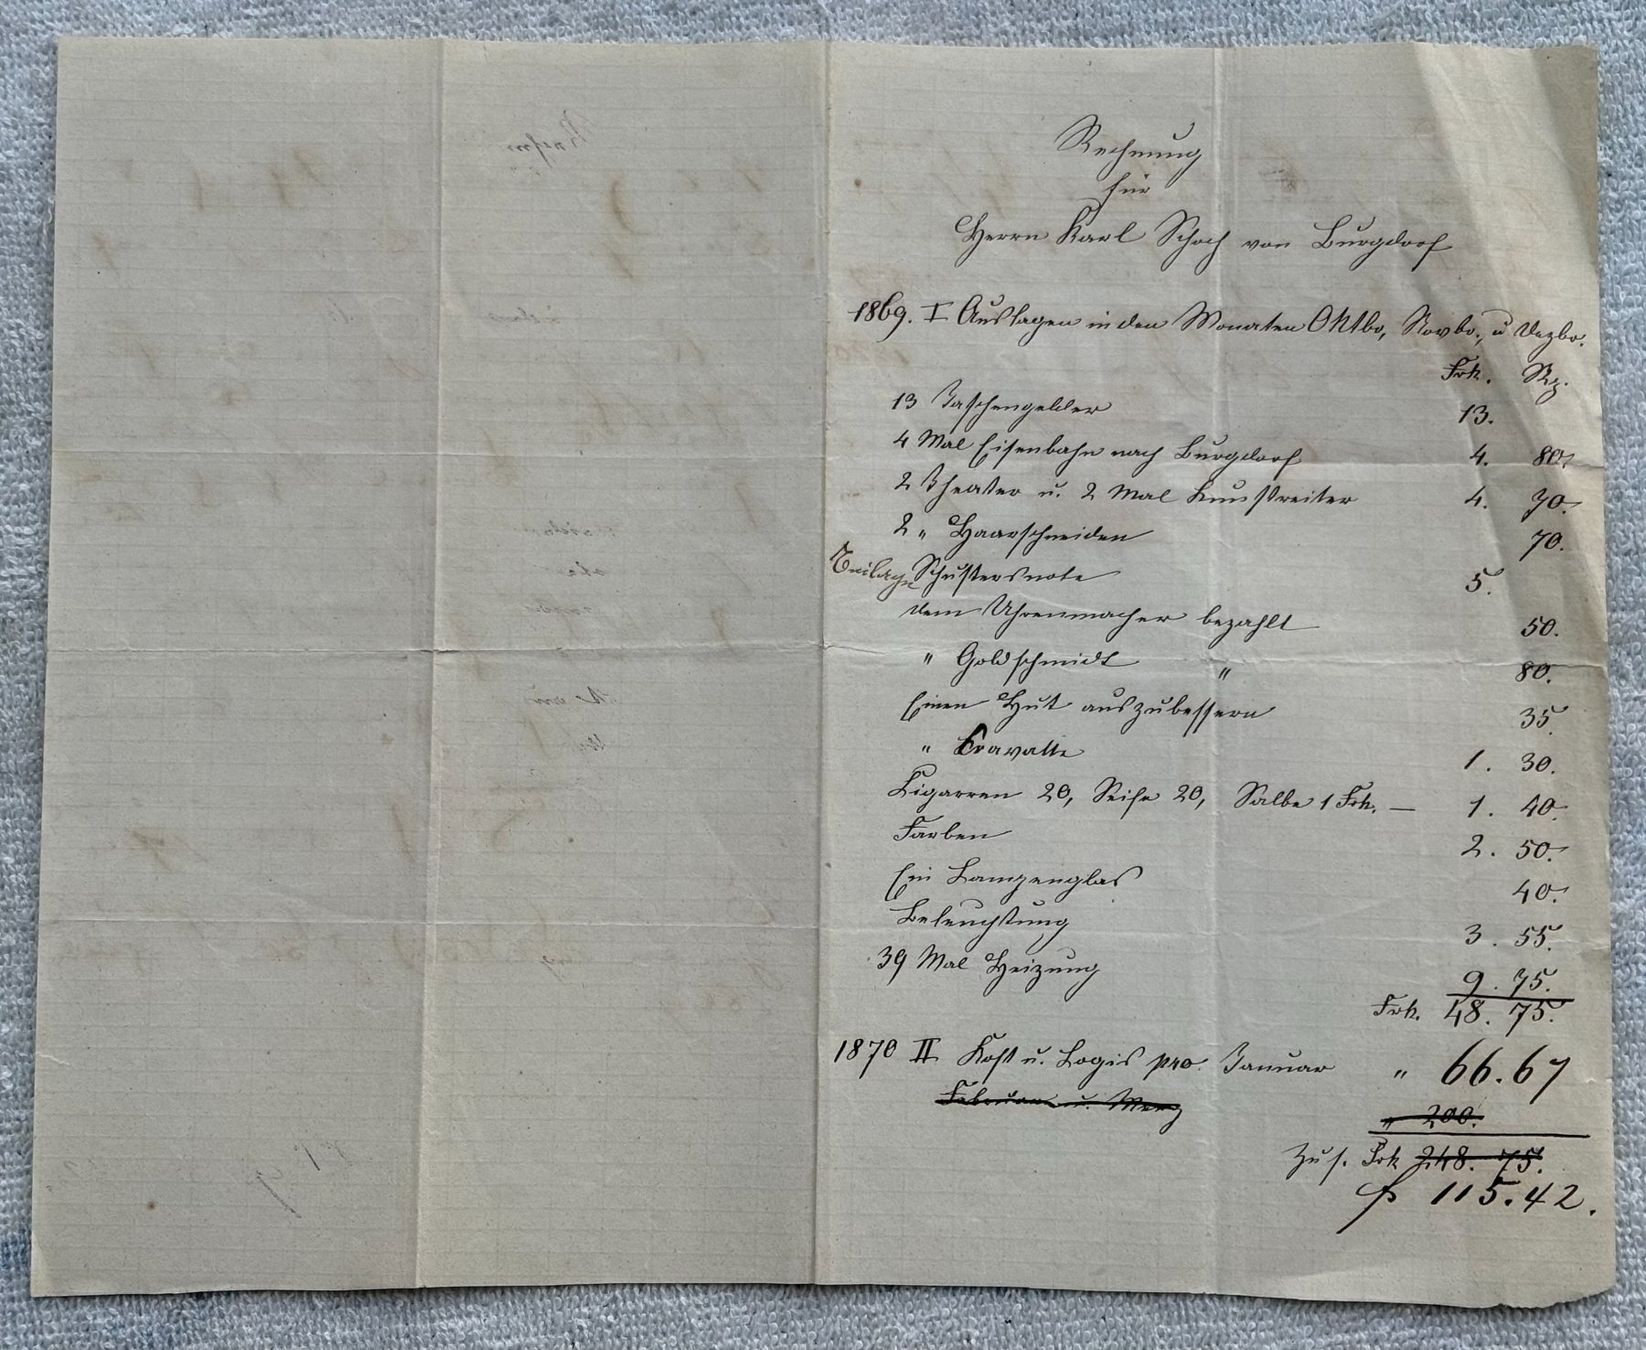 Rechnung
für
Herrn Karl Schoch von Burgdorf
1869. I Auslagen in den Monaten Oktbr, Novbr. u Dezbr.
Frk. Rp.
13 Taschengelder 13.
4 Mal Eisenbahn nach Burgdorf 4. 80.
2 Theater u. 2 Mal Kunstreiter 4. 70.
2 „ Haarschneiden 70.
Beilage Schustersnote 5.
dem Uhrenmacher bezahlt 50.
„ Goldschmidt „ 80.
Einen Hut auszubessern 35.
„ Cravatte 1. 30.
Cigarren 20, Seife 20, Salbe 1 Frk. — 1. 40.
Farben 2. 50.
Ein Lampenglas 40.
Beleuchtung 3. 55.
39 Mal Heizung 9. 75.
Frk. 48. 75.
1870 II Kost u. Logis pro. Januar „ 66.67
Februar u. Merz
„ 200.
Zus. Frk 248. 75.
fr 115.42.